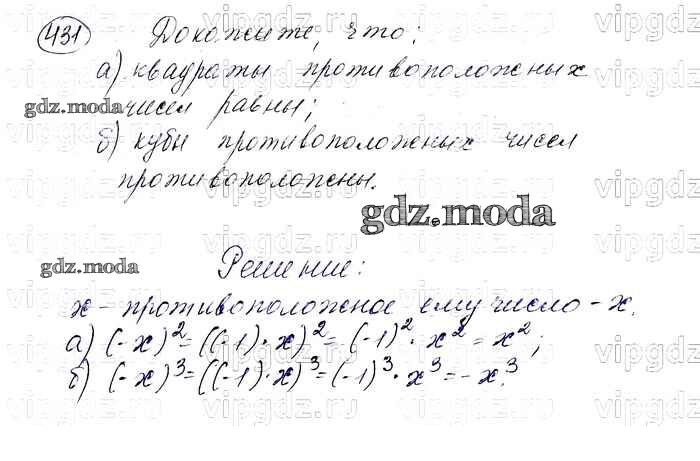 431 Докажите, что:
а) квадраты противоположных
gdz.moda чисел равны;
б) кубы противоположных чисел
противоположны.
gdz.moda
gdz.moda Решение:
x - противоположное ему число - x.
а) (-x)² = ((-1)·x)² = (-1)²·x² = x²;
б) (-x)³ = ((-1)·x)³ = (-1)³·x³ = -x³.